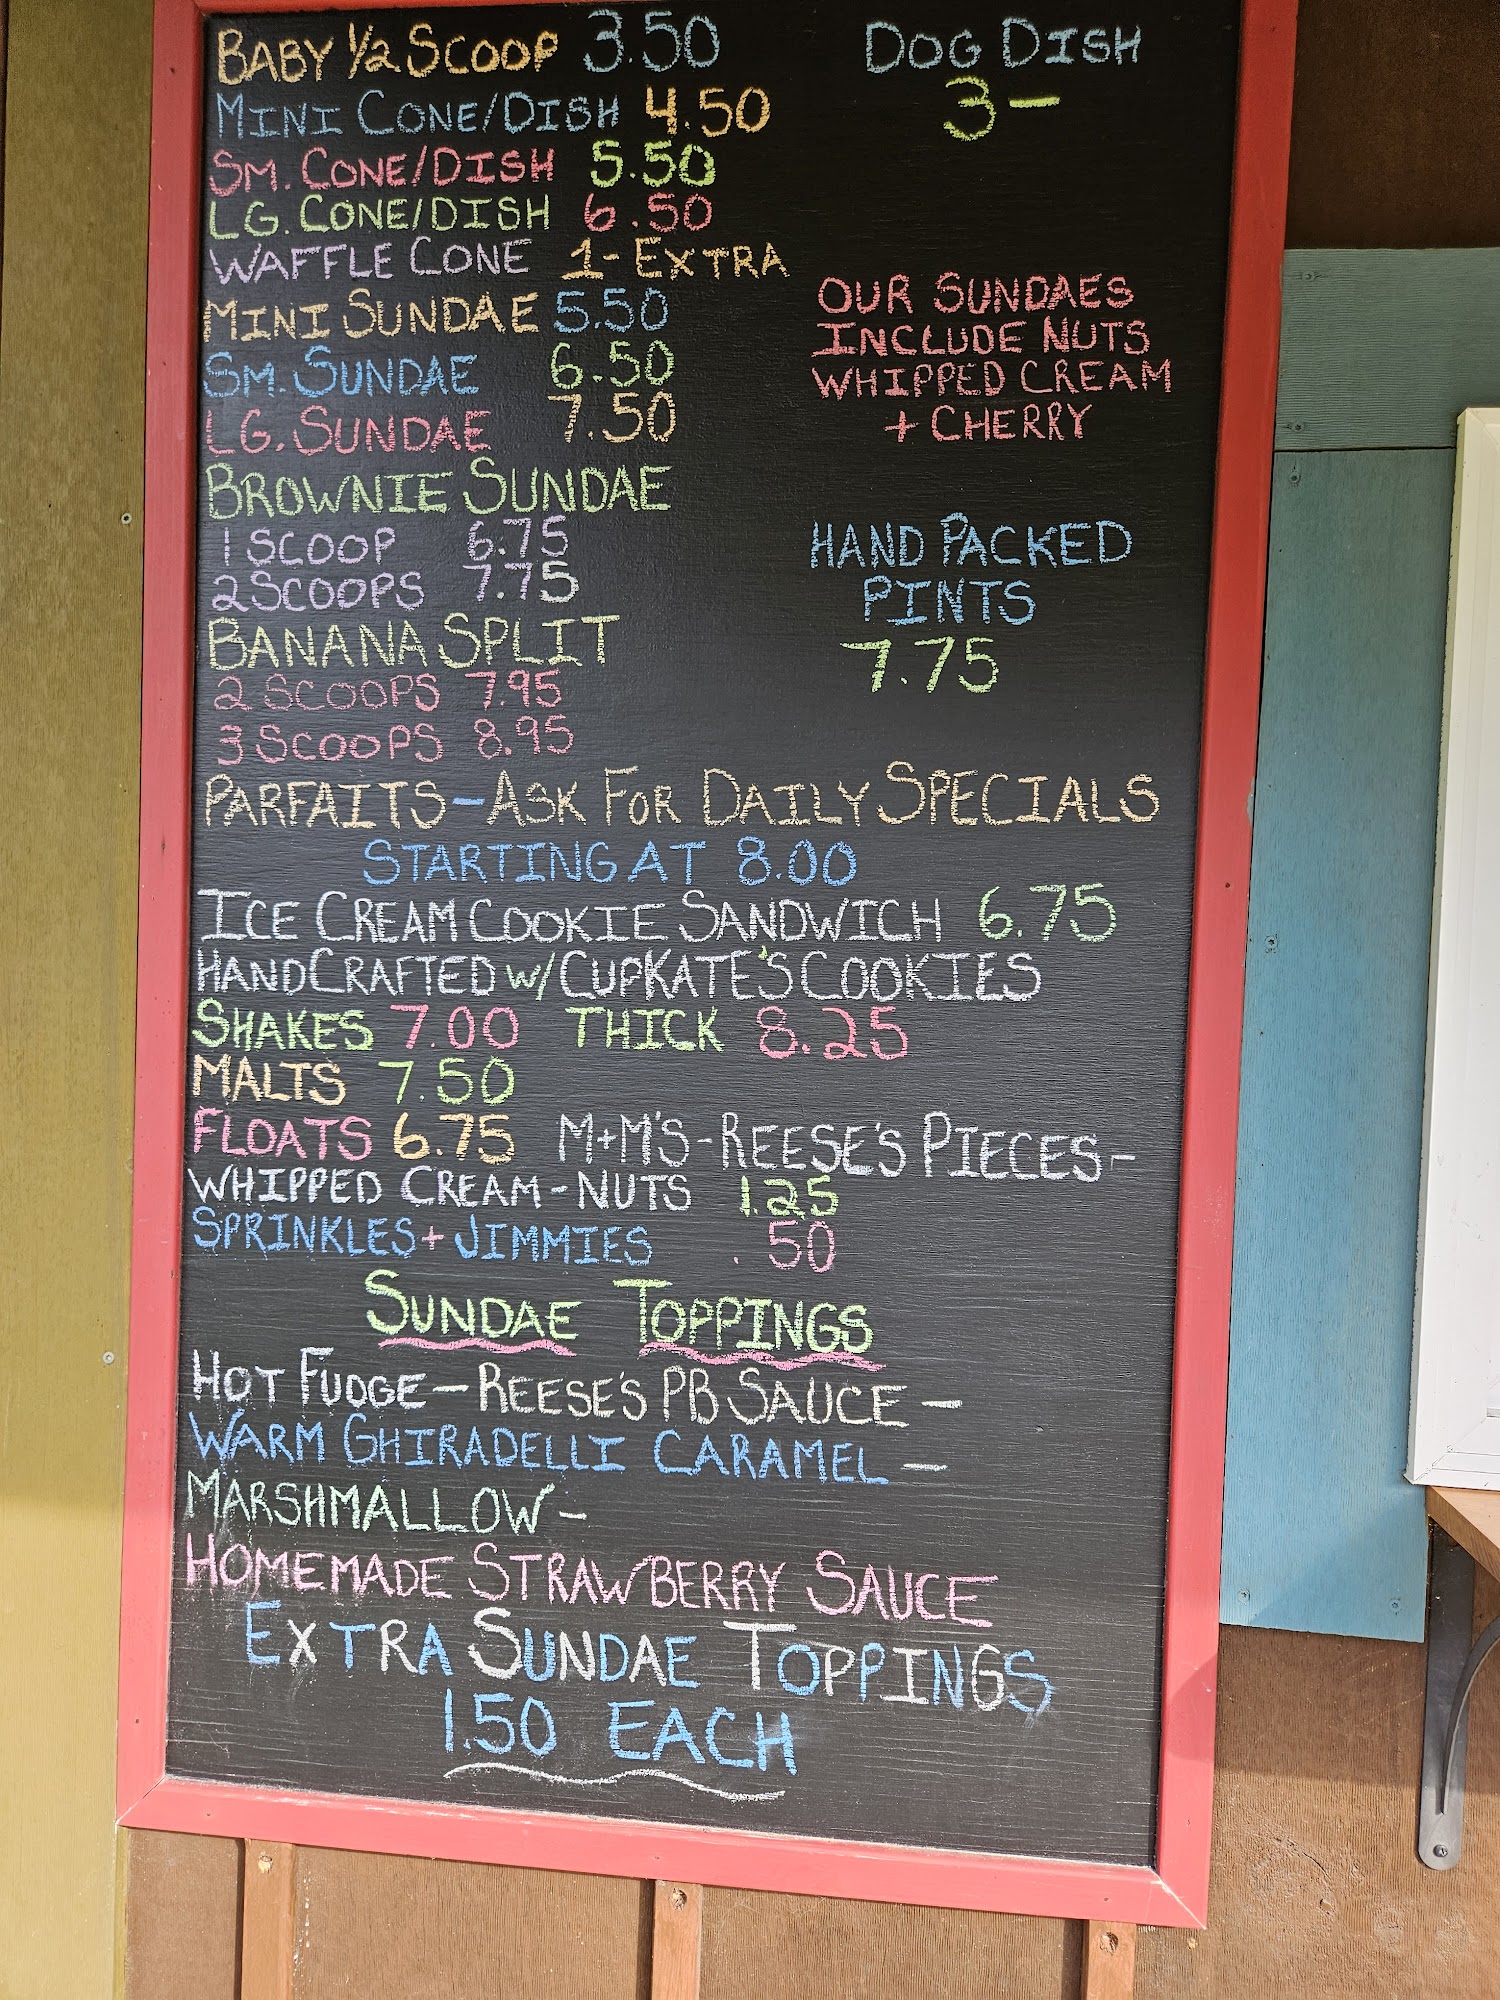 BABY 1/2 SCOOP 3.50
MINI CONE/DISH 4.50
SM. CONE/DISH 5.50
LG. CONE/DISH 6.50
WAFFLE CONE 1- EXTRA
MINI SUNDAE 5.50
SM. SUNDAE 6.50
LG. SUNDAE 7.50
BROWNIE SUNDAE
1 SCOOP 6.75
2 SCOOPS 7.75
BANANA SPLIT
2 SCOOPS 7.95
3 SCOOPS 8.95
DOG DISH
3-
OUR SUNDAES
INCLUDE NUTS
WHIPPED CREAM
+ CHERRY
HAND PACKED
PINTS
7.75
PARFAITS - ASK FOR DAILY SPECIALS
STARTING AT 8.00
ICE CREAM COOKIE SANDWICH 6.75
HANDCRAFTED W/ CUPKATE'S COOKIES
SHAKES 7.00 THICK 8.25
MALTS 7.50
FLOATS 6.75 M+M'S - REESE'S PIECES -
WHIPPED CREAM - NUTS 1.25
SPRINKLES + JIMMIES .50
SUNDAE TOPPINGS
HOT FUDGE - REESE'S PB SAUCE -
WARM GHIRADELLI CARAMEL -
MARSHMALLOW -
HOMEMADE STRAWBERRY SAUCE
EXTRA SUNDAE TOPPINGS
1.50 EACH